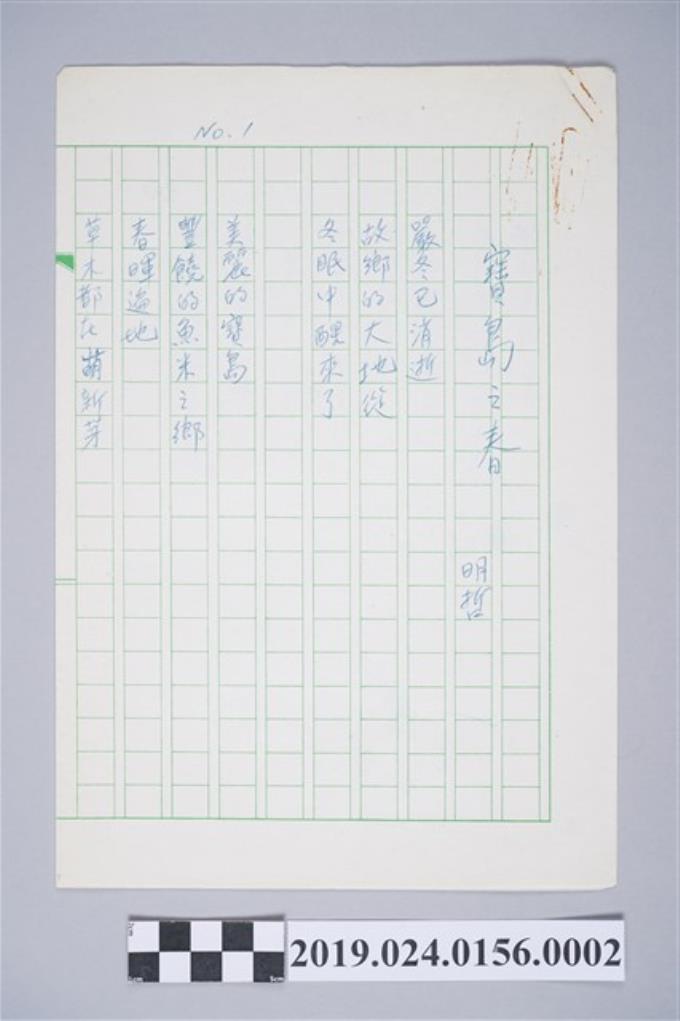 No. 1
寶島之春
明哲
嚴冬已消逝
故鄉的大地從
冬眠中醒來了
美麗的寶島
豐饒的魚米之鄉
春暉遍地
草木都在萌新芽
2019.024.0156.0002